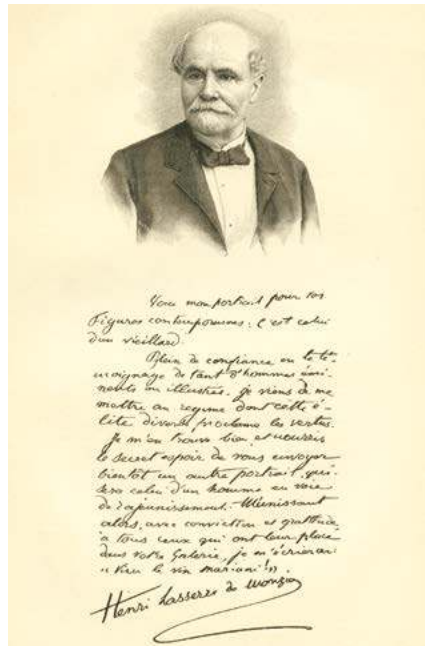 Voici mon portrait pour vos
Figures contemporaines : C'est celui
d'un vieillard.
Plein de confiance en le té-
moignage de tant d'hommes émi-
nents ou illustres, je viens de me
mettre au régime dont cette é-
lite diverse proclame les vertus.
Je m'en trouve bien et nourris
le secret espoir de vous envoyer
bientôt un autre portrait, qui
sera celui d'un homme en voie
de rajeunissement. M'unissant
alors, avec conviction et gratitude,
à tous ceux qui ont leur place
dans votre Galerie, je m'écrierai
"Vive le vin mariani !"
Henri Lasserre de Monzie